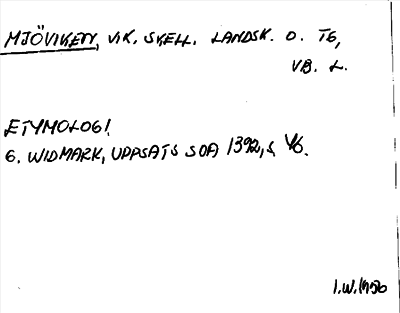 MJÖVIKEN, VIK, SKELL. LANDSK. O. TG,
VB. L.
ETYMOLOGI
G. WIDMARK, UPPSATS SOA 1392, S.
I.W. 1956